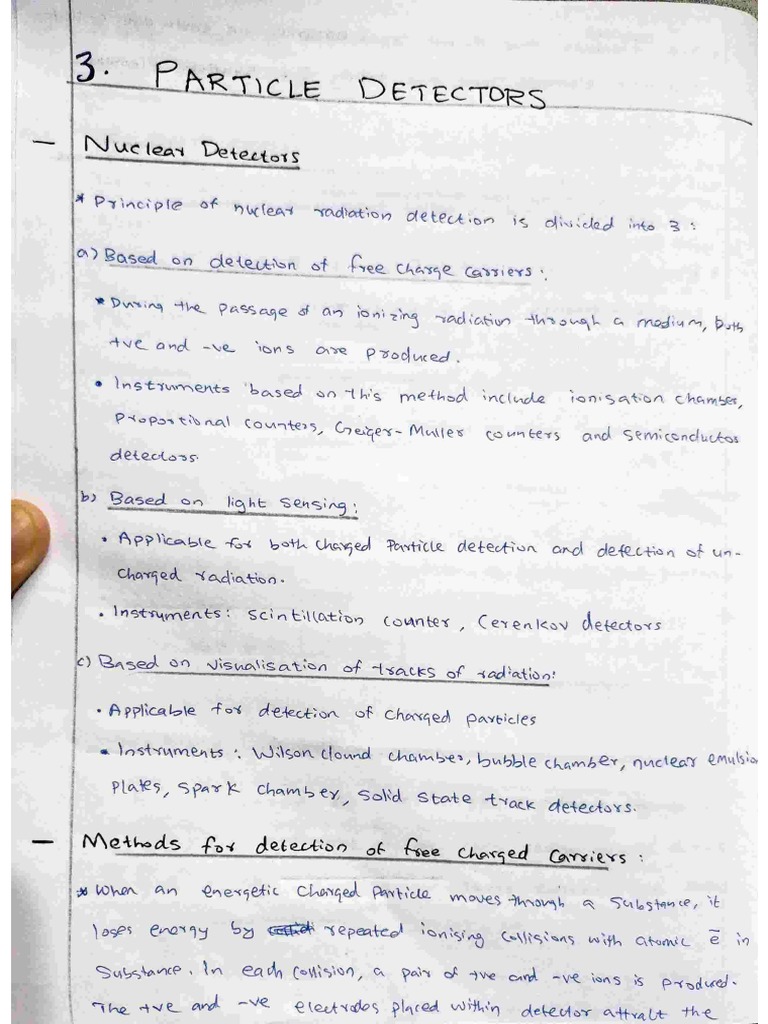 3. PARTICLE DETECTORS
- Nuclear Detectors
* Principle of nuclear radiation detection is divided into 3 :
a) Based on detection of free charge carriers :
* During the passage of an ionizing radiation through a medium, both
+ve and -ve ions are produced.
• Instruments based on this method include ionisation chamber,
Proportional counters, Geiger-Muller counters and semiconductor
detectors.
b) Based on light sensing :
• Applicable for both charged particle detection and detection of un-
charged radiation.
• Instruments: Scintillation counter, Cerenkov detectors
c) Based on visualisation of tracks of radiation:
• Applicable for detection of charged particles
• Instruments : Wilson clound chamber, bubble chamber, nuclear emulsion
plates, spark chamber, solid state track detectors.
- Methods for detection of free charged carriers :
* When an energetic charged particle moves through a substance, it
loses energy by repeated ionising collisions with atomic e̅ in
substance. In each collision, a pair of +ve and -ve ions is produced.
The +ve and -ve electrodes placed within detector attract the